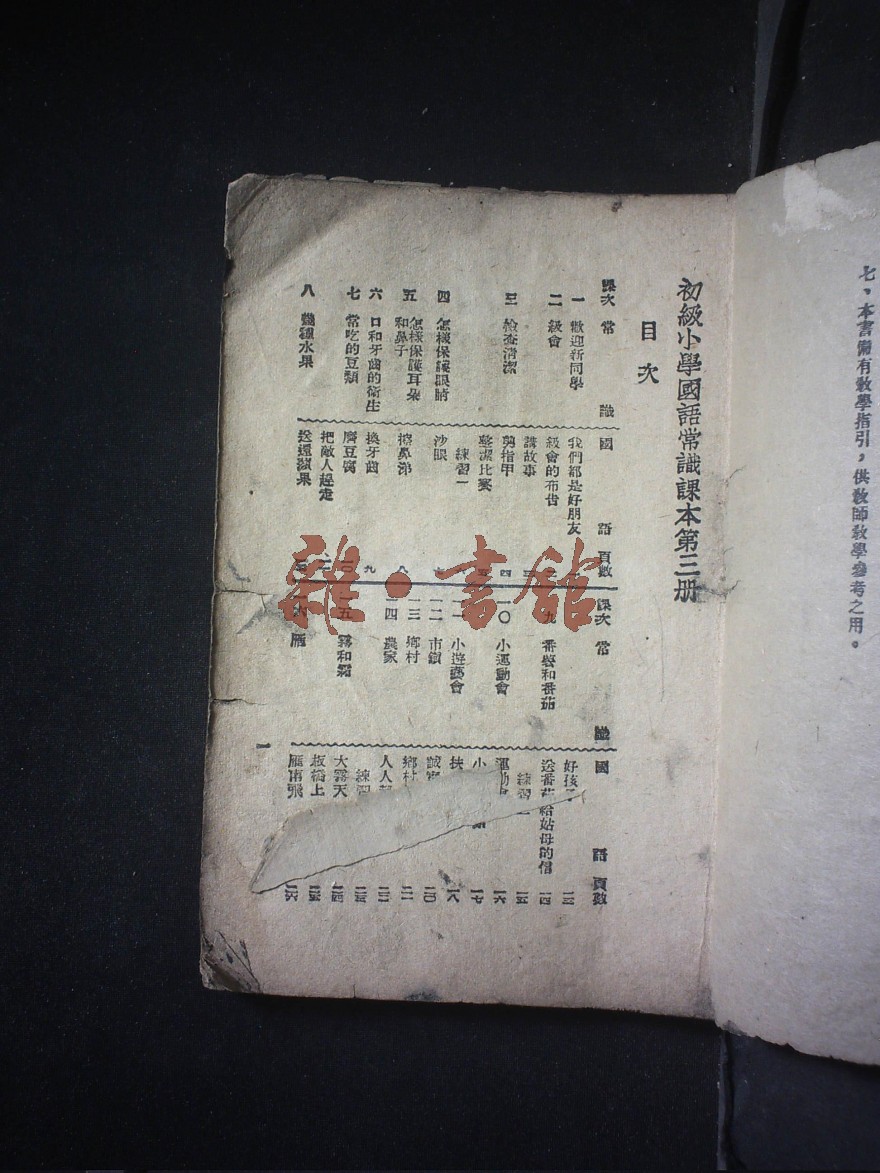 七、本書備有教學指引，供教師教學參考之用。
初級小學國語常識課本第三册
目次
課次 常識 國語 頁數
一 歡迎新同學 我們都是好朋友
二 級會 級會的布告
講故事
三 檢查清潔 剪指甲 四
整潔比賽 五
練習一
四 怎樣保護眼睛 沙眼
五 怎樣保護耳朵和鼻子 擦鼻涕 八
六 口和牙齒的衛生 換牙齒 九
七 常吃的豆類 磨豆腐
把敵人趕走
八 幾種水果 送還蘋果
課次 常識 國語 頁數
好孩 一三
九 番薯和番茄 送番茄給姑母的信 一四
練習 一五
一〇 小運動會 運動會 一六
小 一七
一一 小遊藝會 扶 一八
一二 市鎮 誠實 二〇
一三 鄉村 鄉村 二一
一四 農家 人人 二二
練習 二三
一五 霧和霜 大霧天 二四
板橋上 二五
一六 雁 雁南飛 二六
一
雜·書館